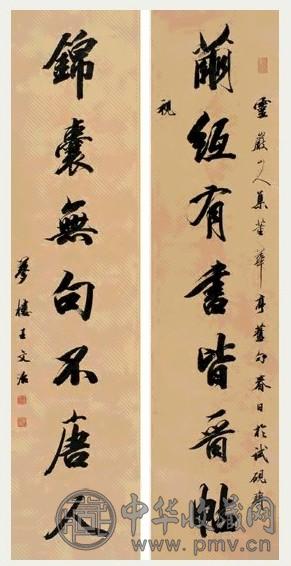 靈巖山人集董華亭舊句春日於試硯齋
視
繭紙有書皆晉帖
錦囊無句不唐人
夢樓王文治
中华收藏网
www.pmv.cn